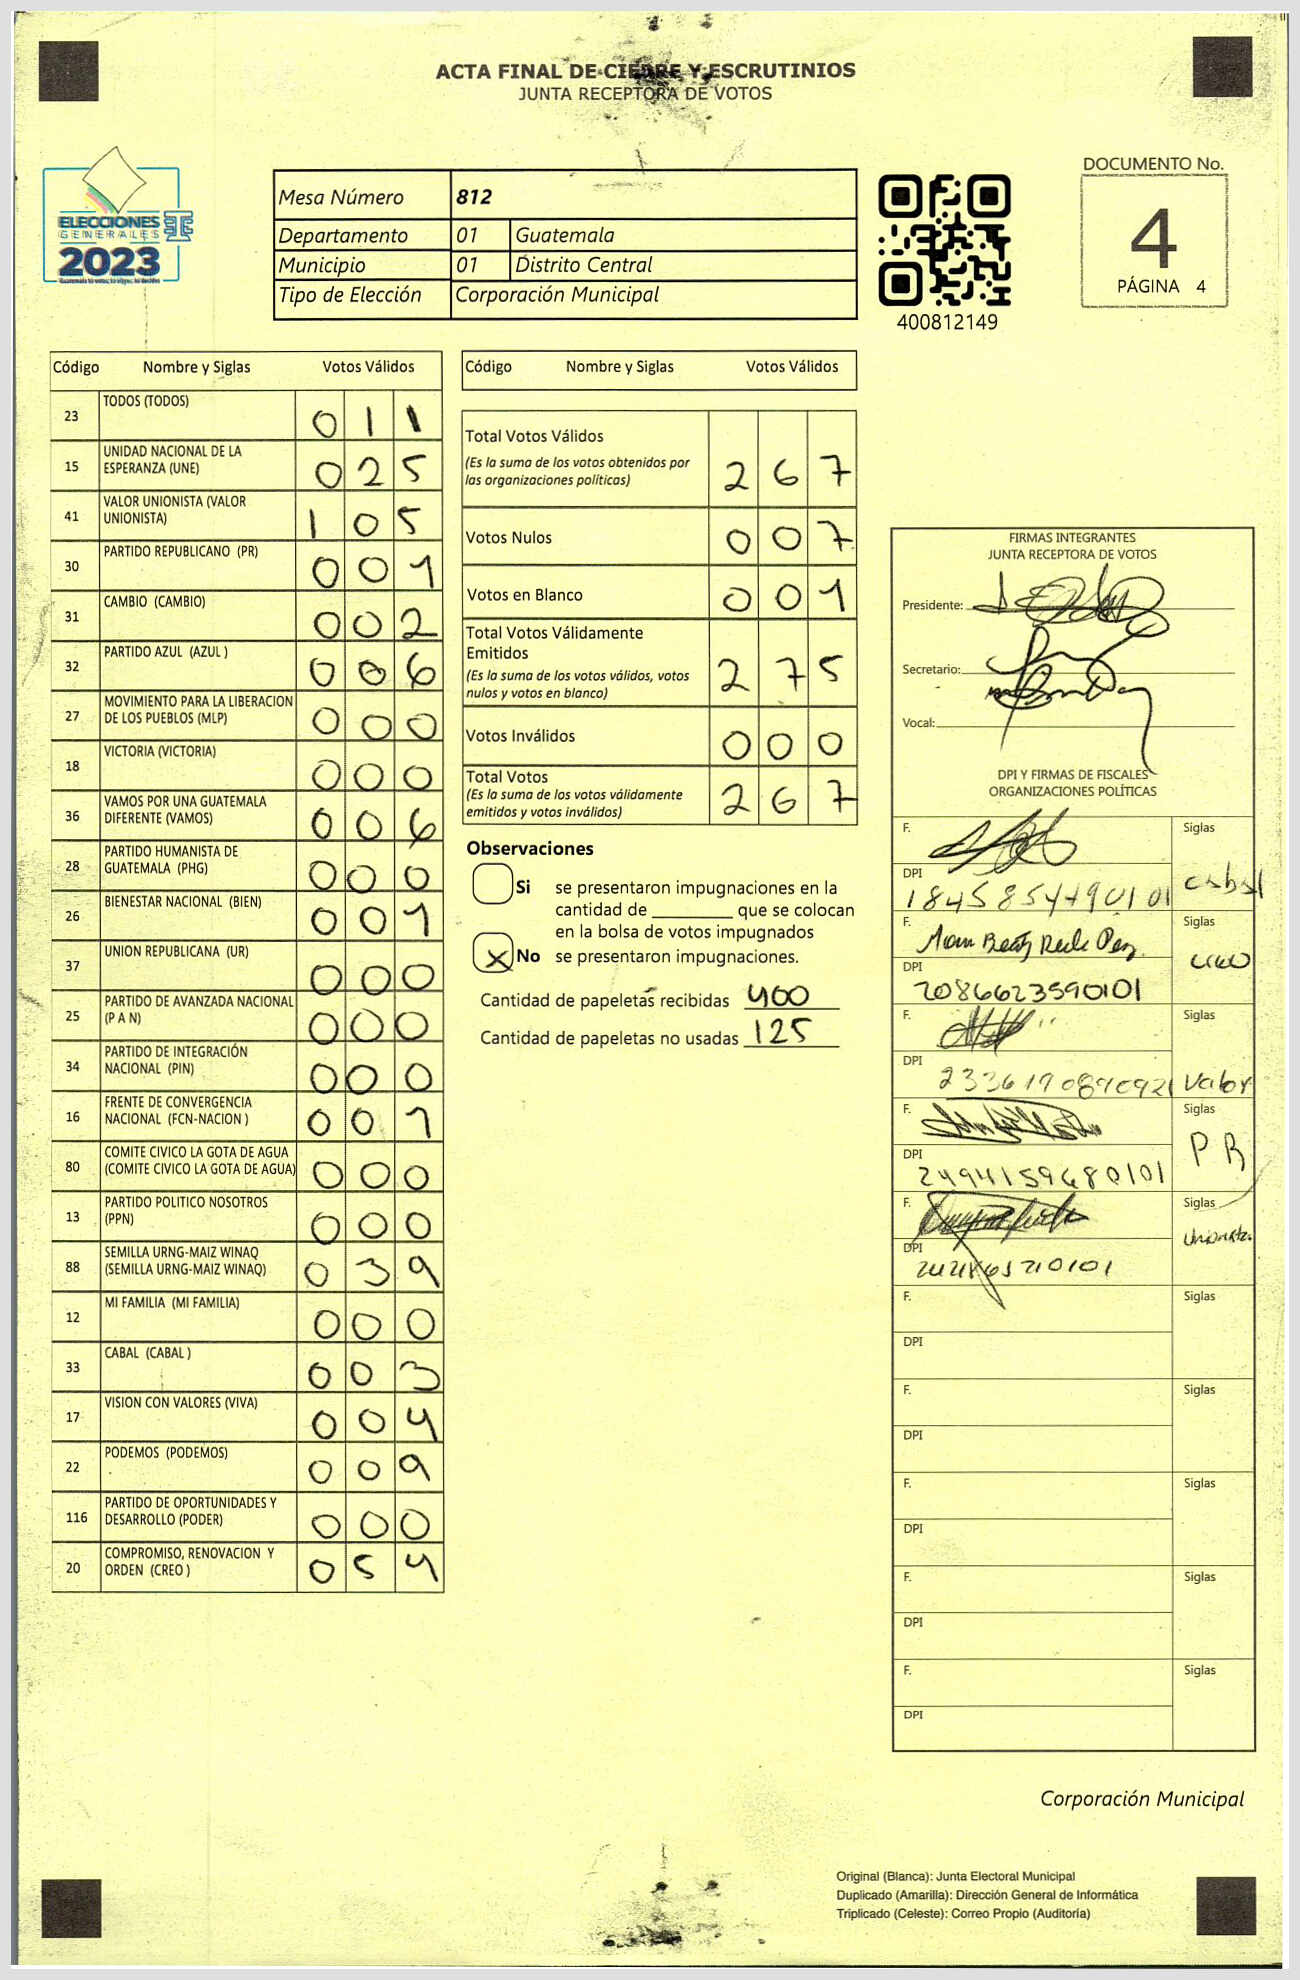 ACTA FINAL DE CIERRE Y ESCRUTINIOS
JUNTA RECEPTORA DE VOTOS
ELECCIONES
GENERALES
2023
Mesa Número 812
Departamento 01 Guatemala
Municipio 01 Distrito Central
Tipo de Elección Corporación Municipal
400812149
DOCUMENTO No.
4
PÁGINA 4
Código Nombre y Siglas Votos Válidos
23 TODOS (TODOS) 0 1 1
15 UNIDAD NACIONAL DE LA ESPERANZA (UNE) 0 2 5
41 VALOR UNIONISTA (VALOR UNIONISTA) 1 0 5
30 PARTIDO REPUBLICANO (PR) 0 0 1
31 CAMBIO (CAMBIO) 0 0 2
32 PARTIDO AZUL (AZUL ) 0 0 6
27 MOVIMIENTO PARA LA LIBERACION DE LOS PUEBLOS (MLP) 0 0 0
18 VICTORIA (VICTORIA) 0 0 0
36 VAMOS POR UNA GUATEMALA DIFERENTE (VAMOS) 0 0 6
28 PARTIDO HUMANISTA DE GUATEMALA (PHG) 0 0 0
26 BIENESTAR NACIONAL (BIEN) 0 0 1
37 UNION REPUBLICANA (UR) 0 0 0
25 PARTIDO DE AVANZADA NACIONAL (P A N) 0 0 0
34 PARTIDO DE INTEGRACIÓN NACIONAL (PIN) 0 0 0
16 FRENTE DE CONVERGENCIA NACIONAL (FCN-NACION ) 0 0 1
80 COMITE CIVICO LA GOTA DE AGUA (COMITE CIVICO LA GOTA DE AGUA) 0 0 0
13 PARTIDO POLITICO NOSOTROS (PPN) 0 0 0
88 SEMILLA URNG-MAIZ WINAQ (SEMILLA URNG-MAIZ WINAQ) 0 3 9
12 MI FAMILIA (MI FAMILIA) 0 0 0
33 CABAL (CABAL ) 0 0 3
17 VISION CON VALORES (VIVA) 0 0 4
22 PODEMOS (PODEMOS) 0 0 9
116 PARTIDO DE OPORTUNIDADES Y DESARROLLO (PODER) 0 0 0
20 COMPROMISO, RENOVACION Y ORDEN (CREO ) 0 5 4
Código Nombre y Siglas Votos Válidos
Total Votos Válidos
(Es la suma de los votos obtenidos por
las organizaciones políticas) 2 6 7
Votos Nulos 0 0 7
Votos en Blanco 0 0 1
Total Votos Válidamente
Emitidos
(Es la suma de los votos válidos, votos
nulos y votos en blanco) 2 7 5
Votos Inválidos 0 0 0
Total Votos
(Es la suma de los votos válidamente
emitidos y votos inválidos) 2 6 7
Observaciones
Si se presentaron impugnaciones en la
cantidad de ________ que se colocan
en la bolsa de votos impugnados
X No se presentaron impugnaciones.
Cantidad de papeletas recibidas 400
Cantidad de papeletas no usadas 125
FIRMAS INTEGRANTES
JUNTA RECEPTORA DE VOTOS
Presidente:
Secretario:
Vocal:
DPI Y FIRMAS DE FISCALES
ORGANIZACIONES POLÍTICAS
F. Siglas
DPI cabal
F. Siglas
DPI 2086623590101
F. Siglas
DPI Valor
F. Siglas
DPI 2494159680101 PR
F. Siglas
DPI Unionista
F. Siglas
DPI
F. Siglas
DPI
F. Siglas
DPI
F. Siglas
DPI
F. Siglas
DPI
Corporación Municipal
Original (Blanca): Junta Electoral Municipal
Duplicado (Amarilla): Dirección General de Informática
Triplicado (Celeste): Correo Propio (Auditoría)